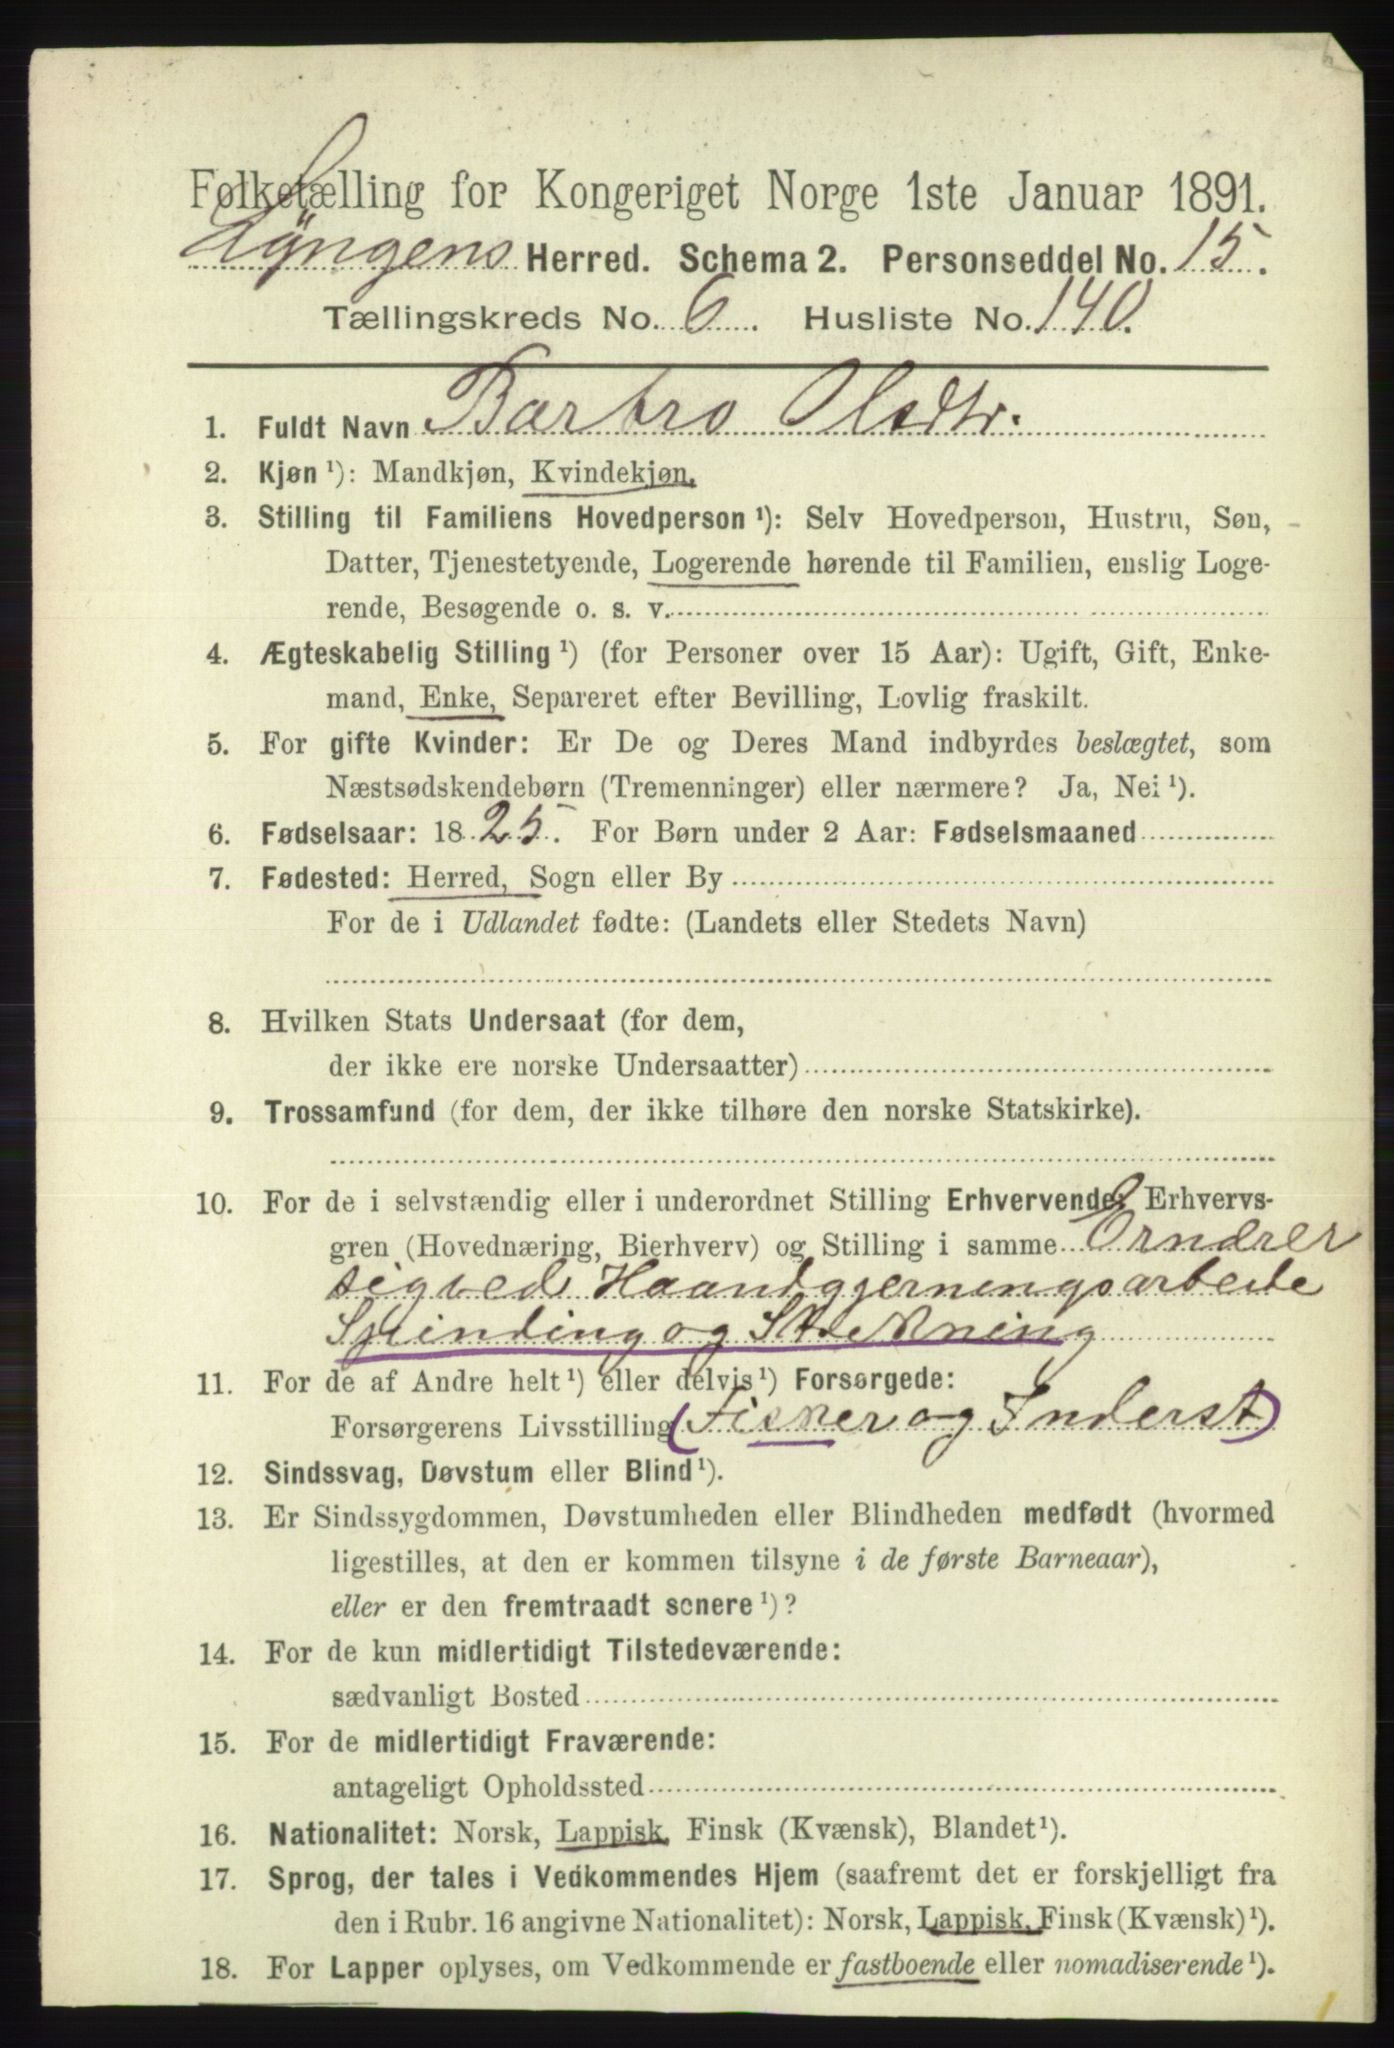 Folketælling for Kongeriget Norge 1ste Januar 1891.
Lyngens Herred. Schema 2. Personseddel No. 15.
Tællingskreds No. 6. Husliste No. 140.
1. Fuldt Navn Barbro Olsdtr.
2. Kjøn ¹): Mandkjøn, Kvindekjøn.
3. Stilling til Familiens Hovedperson ¹): Selv Hovedperson, Hustru, Søn,
Datter, Tjenestetyende, Logerende hørende til Familien, enslig Loge-
rende, Besøgende o. s. v.
4. Ægteskabelig Stilling ¹) (for Personer over 15 Aar): Ugift, Gift, Enke-
mand, Enke, Separeret efter Bevilling, Lovlig fraskilt.
5. For gifte Kvinder: Er De og Deres Mand indbyrdes beslægtet, som
Næstsødskendebørn (Tremenninger) eller nærmere? Ja, Nei ¹).
6. Fødselsaar: 1825. For Børn under 2 Aar: Fødselsmaaned
7. Fødested: Herred, Sogn eller By
For de i Udlandet fødte: (Landets eller Stedets Navn)
8. Hvilken Stats Undersaat (for dem,
der ikke ere norske Undersaatter)
9. Trossamfund (for dem, der ikke tilhøre den norske Statskirke).
10. For de i selvstændig eller i underordnet Stilling Erhvervende: Erhvervs-
gren (Hovednæring, Bierhverv) og Stilling i samme Ernærer
sig ved Haandgjerningsarbeide
Spinding og Strikning
11. For de af Andre helt ¹) eller delvis ¹) Forsørgede:
Forsørgerens Livsstilling (Fisker og Inderst)
12. Sindssvag, Døvstum eller Blind ¹).
13. Er Sindssygdommen, Døvstumheden eller Blindheden medfødt (hvormed
ligestilles, at den er kommen tilsyne i de første Barneaar),
eller er den fremtraadt senere ¹)?
14. For de kun midlertidigt Tilstedeværende:
sædvanligt Bosted
15. For de midlertidigt Fraværende:
antageligt Opholdssted
16. Nationalitet: Norsk, Lappisk, Finsk (Kvænsk), Blandet ¹).
17. Sprog, der tales i Vedkommendes Hjem (saafremt det er forskjelligt fra
den i Rubr. 16 angivne Nationalitet): Norsk, Lappisk, Finsk (Kvænsk) ¹).
18. For Lapper oplyses, om Vedkommende er fastboende eller nomadiserende ¹).